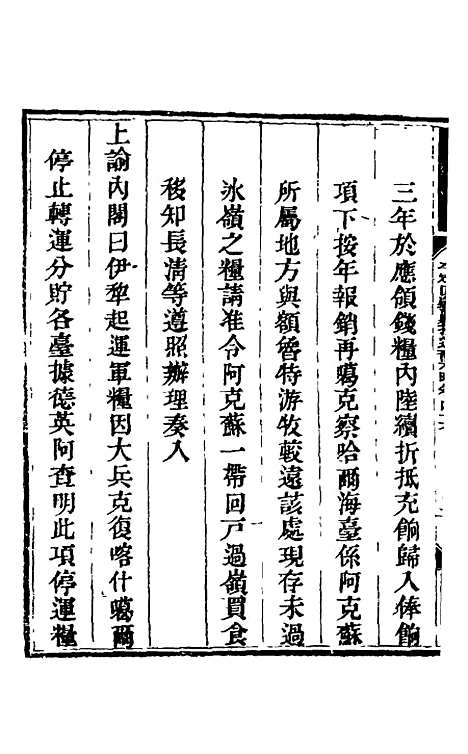 三年於應領錢糧內陸續折抵充餉歸入俸餉
項下按年報銷再噶克察哈爾海臺係阿克蘇
所屬地方與額魯特游牧較遠該處現存未過
氷嶺之糧請准令阿克蘇一帶回戸過嶺買食
移知長清等遵照辦理奏入
上諭內閣曰伊犂起運軍糧因大兵克復喀什噶爾
停止轉運分貯各臺據德英阿查明此項停運糧